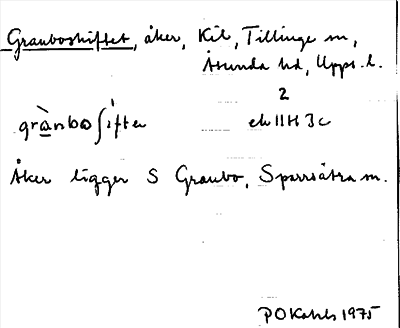 Grauboskiftet, åker, Kil, Tillinge sn,
Åsunda hd, Upps. l.
2
grànboʃìften ek 11H 3c
Åker ligger S Graubo, Sparrsätra sn.
P O Kahls 1975